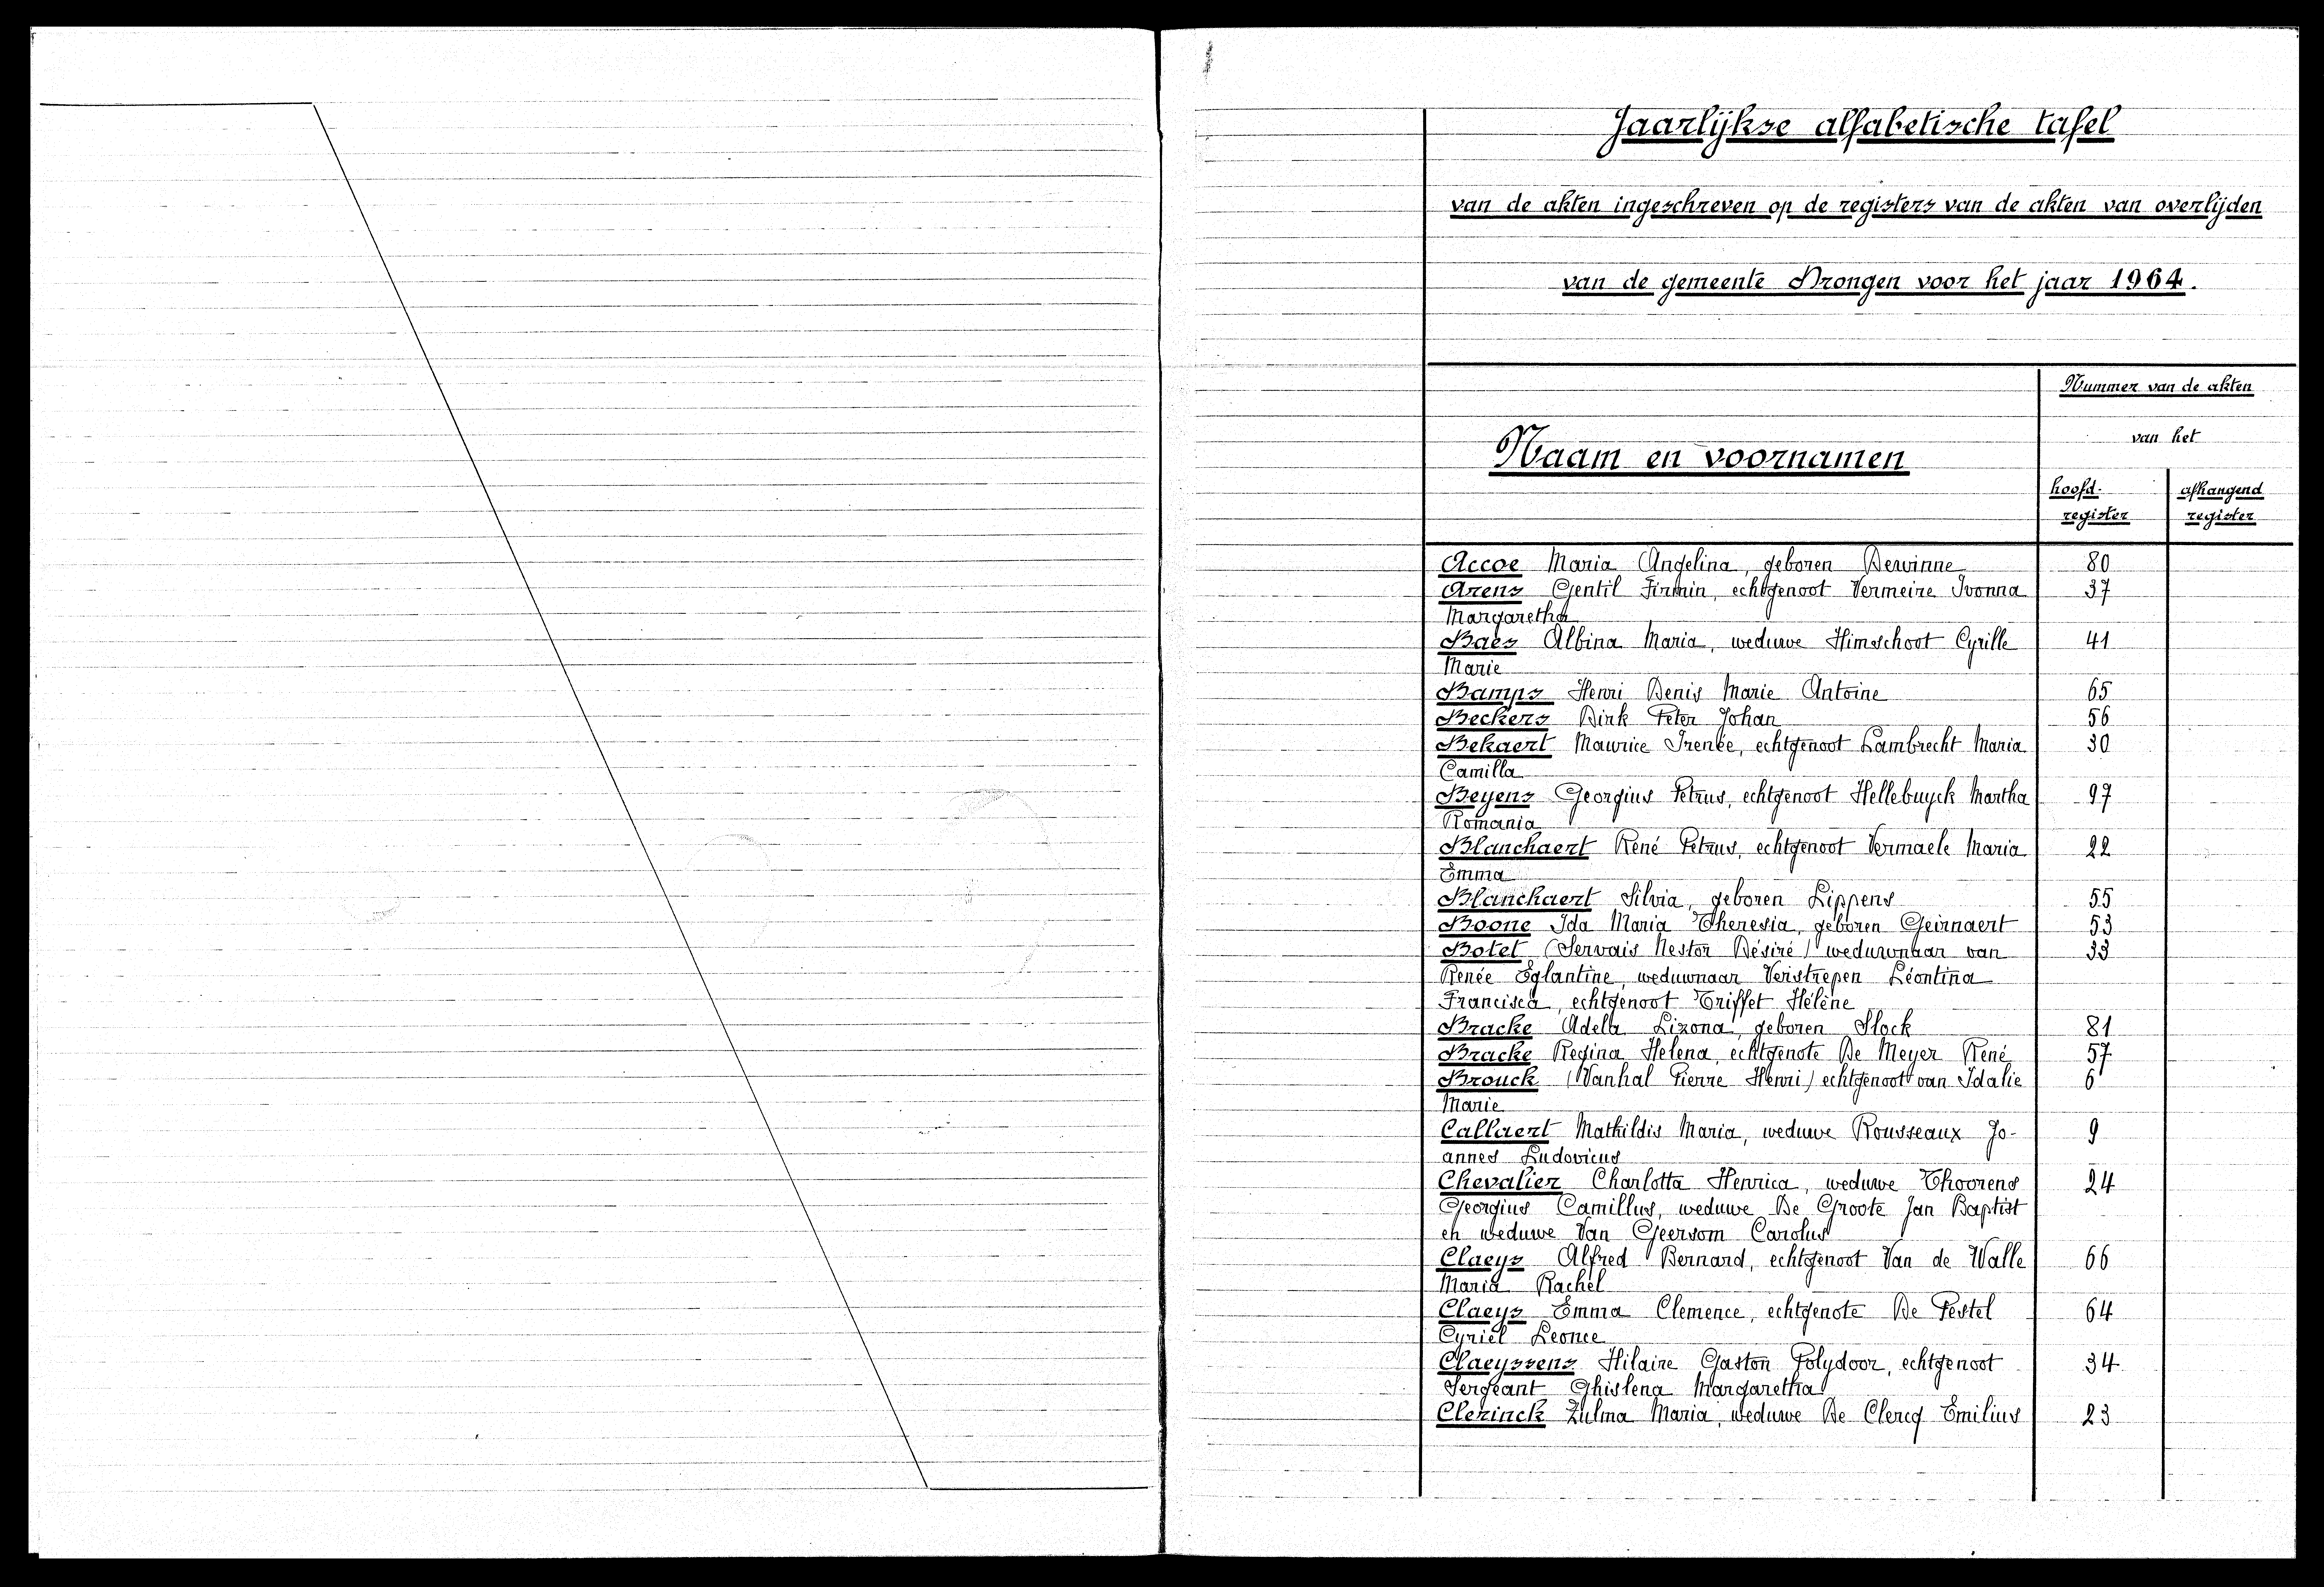 Jaarlijkse alfabetische tafel
van de akten ingeschreven op de registers van de akten van overlijden
van de gemeente Drongen voor het jaar 1964.
Nummer van de akten
van het
Naam en voornamen
hoofd- afhangend
register register
Accoe Maria Angelina, geboren Dewinne 80
Arens Gentil Firmin, echtgenoot Vermeire Ivonna 37
Margaretha
Baes Albina Maria, weduwe Himschoot Cyrille 41
Marie
Bamps Henri Denis Marie Antoine 65
Beckers Dirk Peter Johan 56
Bekaert Maurice Irenée, echtgenoot Lambrecht Maria 30
Camilla
Beyens Georgius Petrus, echtgenoot Hellebuyck Martha 97
Romania
Blanchaert René Petrus, echtgenoot Vermaele Maria 22
Emma
Blanchaert Silvia, geboren Lippens 55
Boone Ida Maria Theresia, geboren Geirnaert 53
Botel (Servais Nestor Désiré) weduwnaar van 33
Renée Eglantine, weduwnaar Verstrepen Léontina
Francisca, echtgenoot Triffet Hélène
Bracke Adela Lizona, geboren Slock 81
Bracke Regina Helena, echtgenote De Meyer René 57
Brouck (Vanhal Pierre Henri) echtgenoot van Idalie 6
Marie
Callaert Mathildis Maria, weduwe Rousseaux Jo- 9
annes Ludovicus
Chevalier Charlotta Henrica, weduwe Thoorens 24
Georgius Camillus, weduwe De Groote Jan Baptist
en weduwe Van Geersom Carolus
Claeys Alfred Bernard, echtgenoot Van de Walle 66
Maria Rachel
Claeys Emma Clemence, echtgenote De Pestel 64
Cyriel Leonce
Claeyssens Hilaire Gaston Polydoor, echtgenoot 34
Sergeant Ghislena Margaretha
Clerinck Zulma Maria, weduwe De Clercq Emilius 23